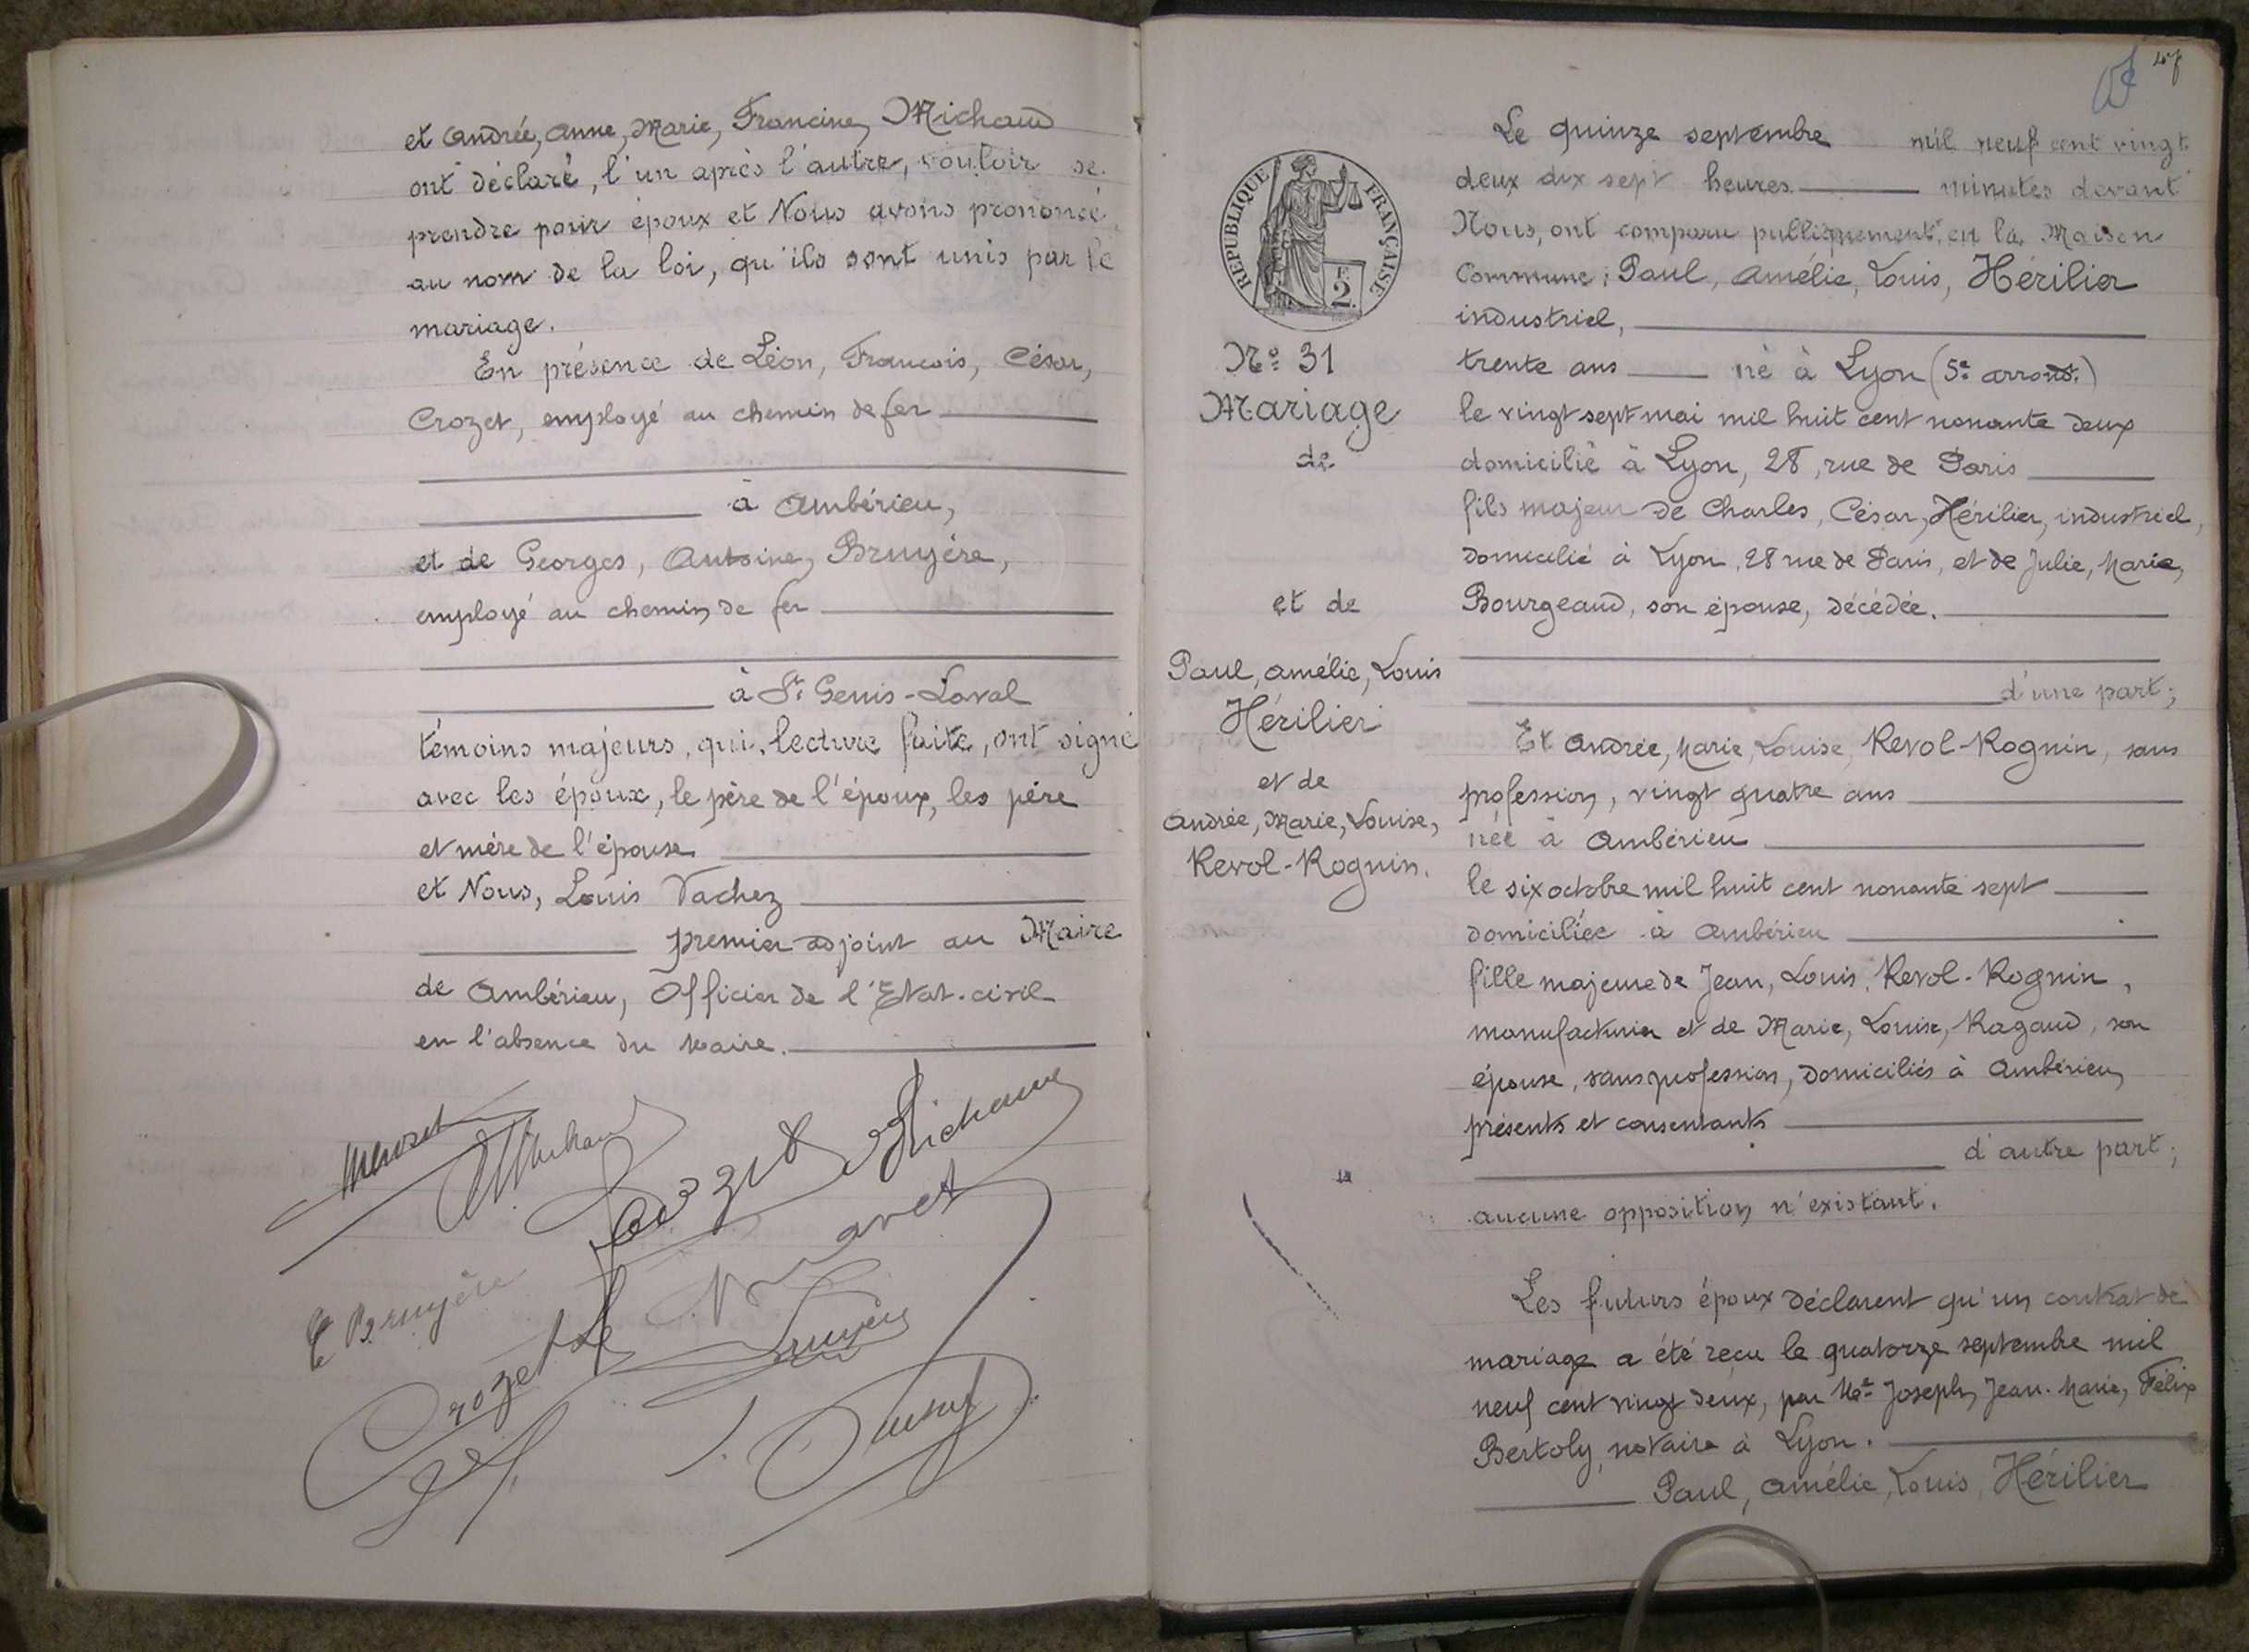 et Andrée, Anne, Marie, Francine, Michaud
ont déclaré, l'un après l'autre, vouloir se
prendre pour époux et Nous avons prononcé
au nom de la loi, qu'ils sont unis par le
mariage.
En présence de Léon, François, César,
Crozet, employé au chemin de fer
à Ambérieu,
et de Georges, Antoine, Bruyère,
employé au chemin de fer
à St Genis-Laval
témoins majeurs, qui, lecture faite, ont signé
avec les époux, le père de l'époux, les père
et mère de l'épouse
et Nous, Louis Vachez
premier adjoint au Maire
de Ambérieu, Officier de l'Etat-civil
en l'absence du Maire.
Crozet
Michaud
Bruyère
Crozet
47
RÉPUBLIQUE FRANÇAISE
F.
2.
No 31
Mariage
de
et de
Paul, Amélie, Louis
Hérilier
et de
Andrée, Marie, Louise,
Revol-Rognin.
Le quinze septembre mil neuf cent vingt
deux dix sept heures minutes devant
Nous, ont comparu publiquement en la Maison
Commune : Paul, Amélie, Louis, Hérilier
industriel,
trente ans né à Lyon (5e arrondt.)
le vingt sept mai mil huit cent nonante deux
domicilié à Lyon, 28, rue de Paris
fils majeur de Charles, César, Hérilier, industriel,
domicilié à Lyon, 28 rue de Paris, et de Julie, Marie,
Bourgeaud, son épouse, décédée.
d'une part ;
Et Andrée, Marie, Louise, Revol-Rognin, sans
profession, vingt quatre ans
née à Ambérieu
le six octobre mil huit cent nonante sept
domiciliée à Ambérieu
fille majeure de Jean, Louis, Revol-Rognin,
manufacturier et de Marie, Louise, Ragaud, son
épouse, sans profession, domiciliés à Ambérieu,
présents et consentants
d'autre part ;
aucune opposition n'existant.
Les futurs époux déclarent qu'un contrat de
mariage a été reçu le quatorze septembre mil
neuf cent vingt deux, par Me Joseph, Jean-Marie, Félix
Bertoly, notaire à Lyon.
Paul, Amélie, Louis, Hérilier